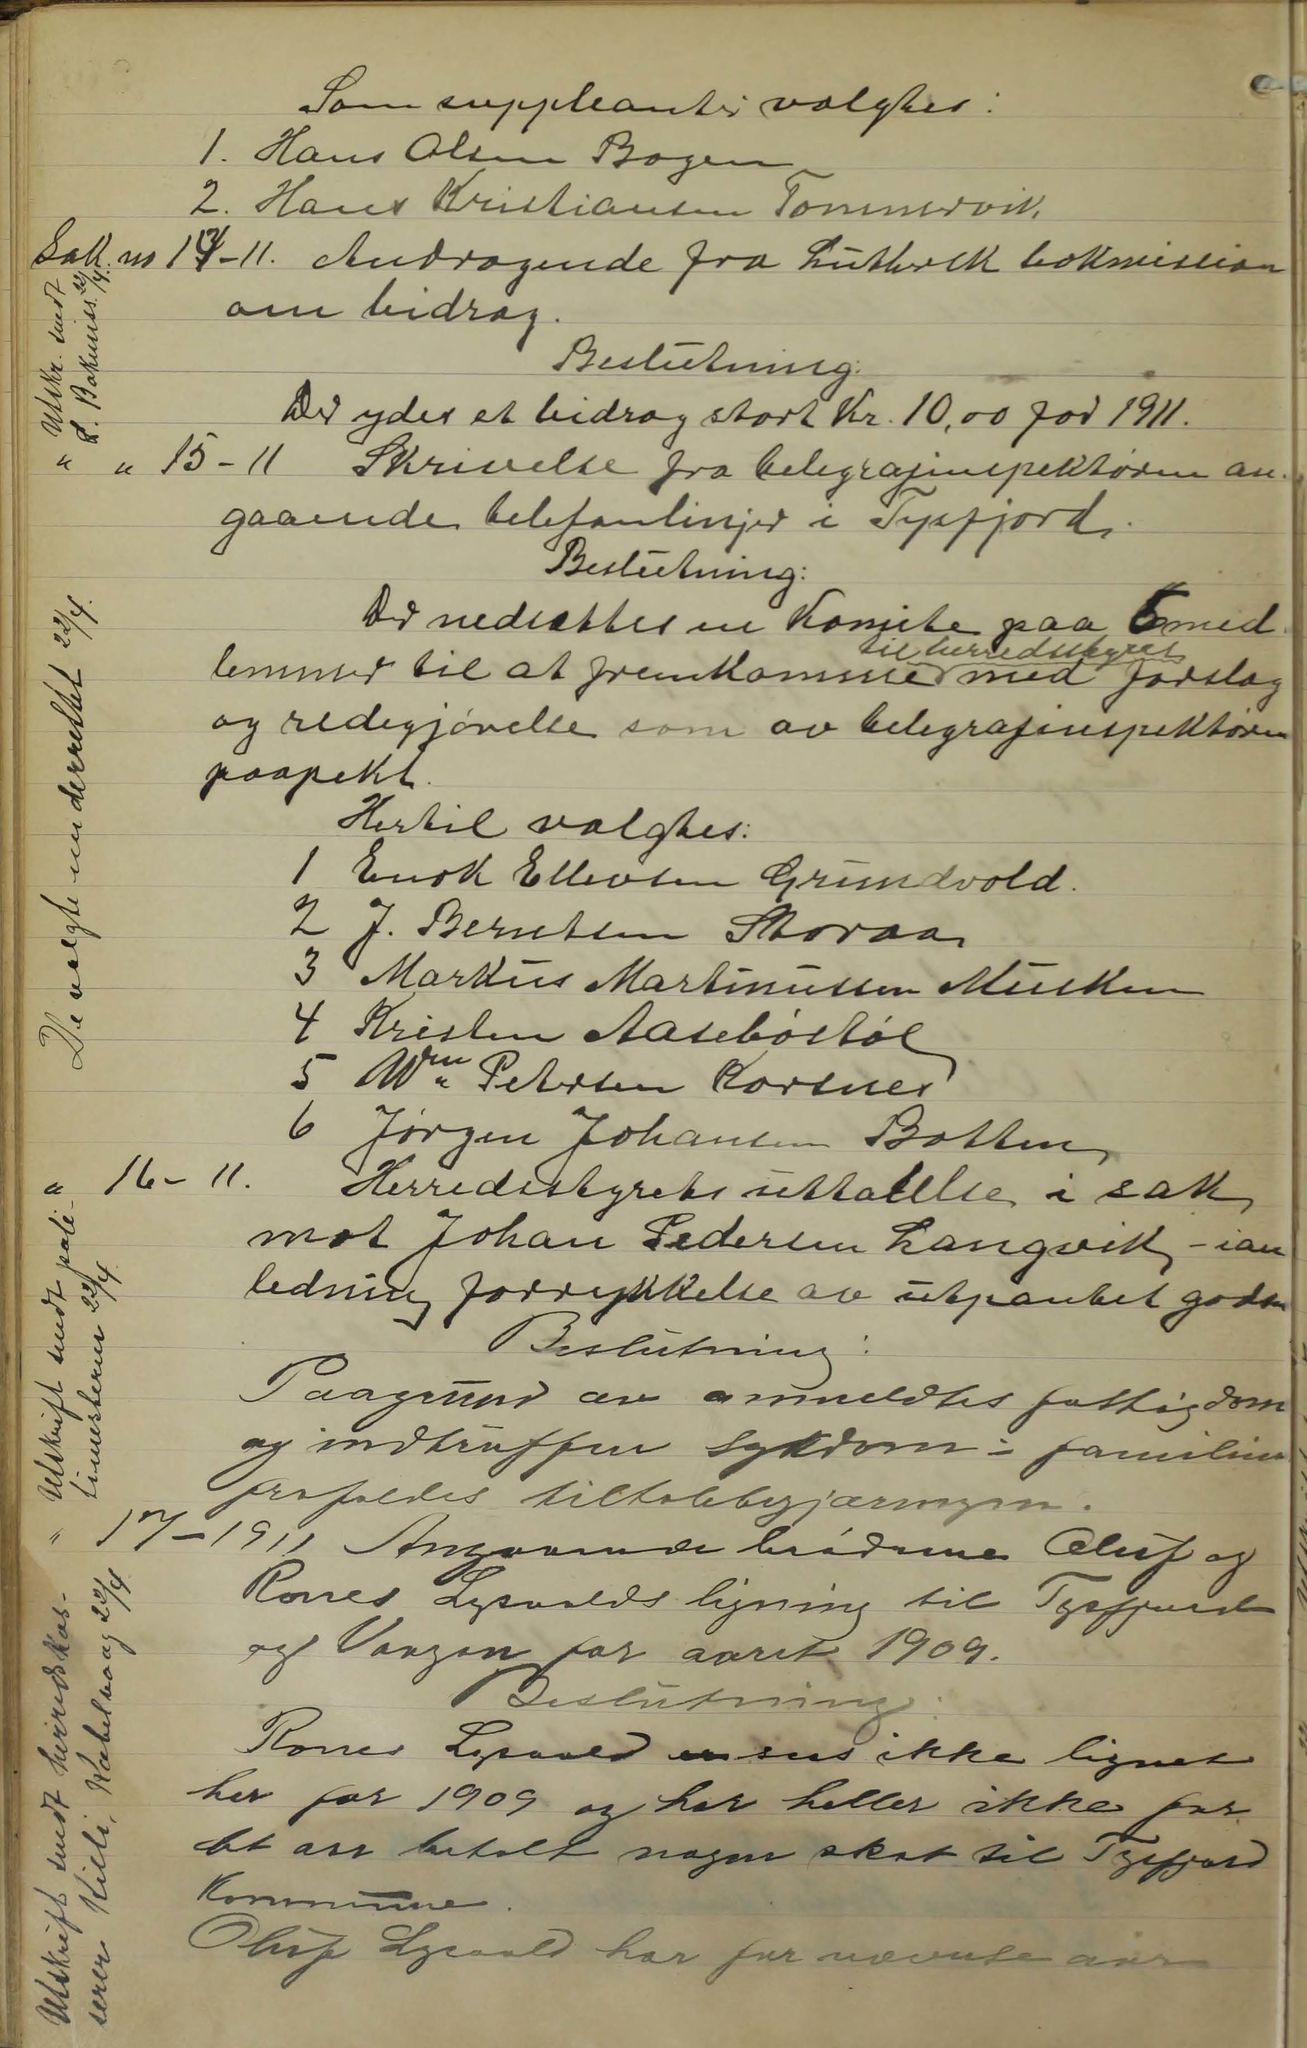 Som suppleanter valgtes:
1. Hans Olsen Bogen
2. Hans Kristiansen Tommervik.
Sak no 14-11. Andragende fra Luthersk bokmission
om bidrag.
Beslutning:
Der ydes et bidrag stort Kr. 10,00 for 1911.
" " 15-11 Skrivelse fra telegrafinspektøren an-
gaaende telefonlinjer i Tysfjord.
Beslutning:
Der nedsættes en Komite paa 6 med
til herredsstyret
lemmer til at fremkomme med forslag
og redegjørelse som av telegrafinspektøren
paapekt.
Hertil valgtes:
1 Enok Ellevsen Grundvold.
2 J. Berntsen Storaa
3 Markus Martinussen Musken
4 Kristen Aasebøstøl
5 Wm Petersen Korsnes
6 Jørgen Johansen Botten
" 16-11. Herredsstyrets uttalelse i sak
mot Johan Pedersen Langvik, - i an
ledning forrykkelse av utpantet gods
Beslutning:
Paagrund av anmeldtes fattigdom
og indtruffen sykdom i familien
frafaldes tiltalebegjæringen.
" 17-1911 Angaaende brødrene Oluf og
Rones Lysvolds ligning til Tysfjord
og Vaagan for aaret 1909.
Beslutning:
Rones Lysvold sees ikke lignet
her for 1909 og har heller ikke for
det aar betalt nogen skat til Tysfjord
Kommune.
Oluf Lysvold har for nævnte aar
Utskr. sendt
L. Bokmiss. 22/4.
De valgte underrettet 22/4.
Utskrift sendt poli-
timesteren 22/4
Utskrift sendt herredskas-
serer Kiil, Kabelvaag 22/4